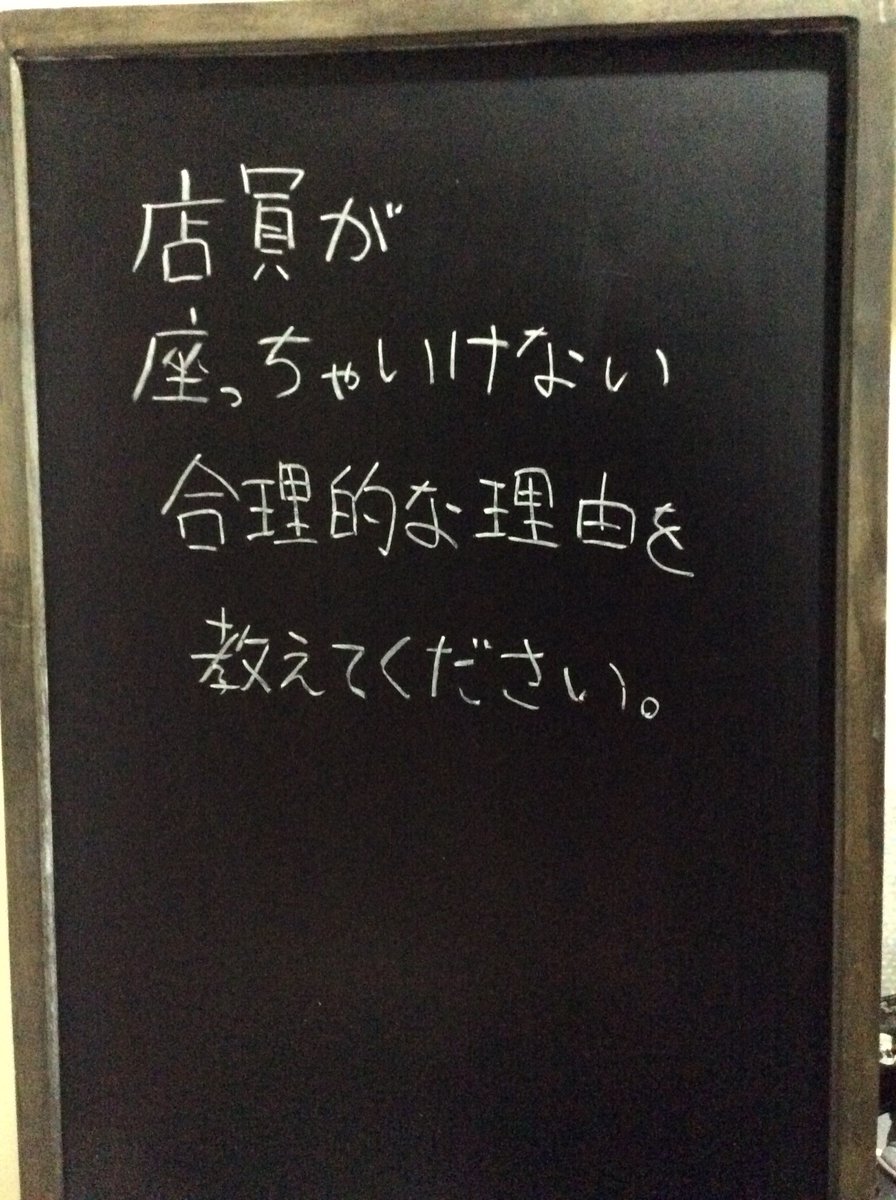 店員が
座っちゃいけない
合理的な理由を
教えてください。